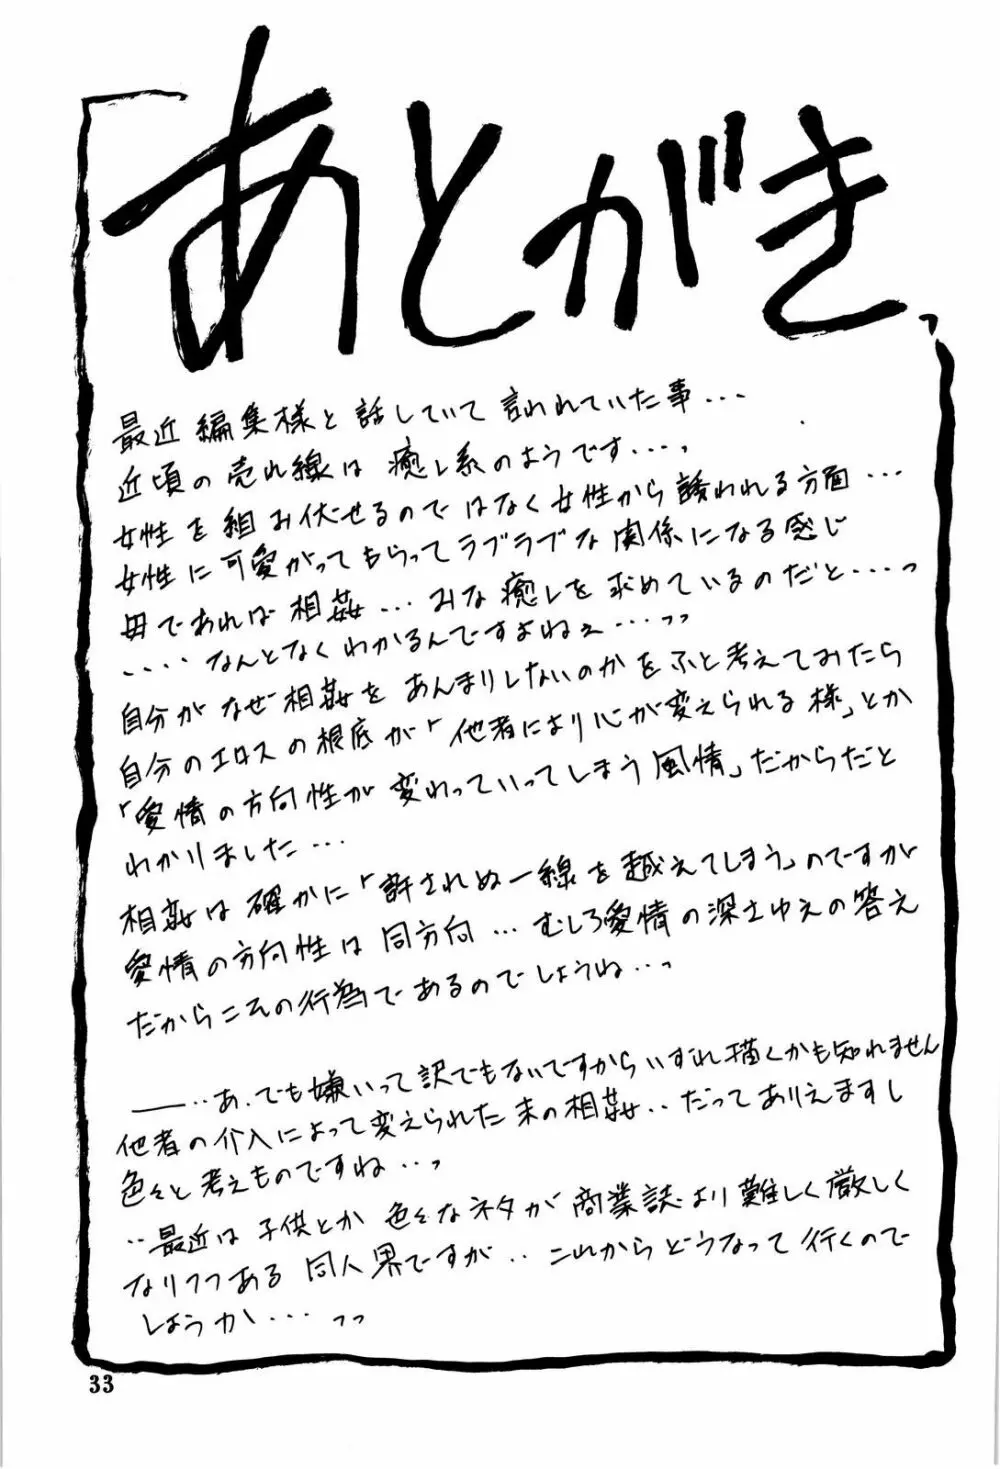 「あとがき」
最近編集様と話していて言われていた事...
近頃の売れ線は癒し系のようです...っ
女性を組み伏せるのではなく女性から誘われる方面...
女性に可愛がってもらってラブラブな関係になる感じ
母であれば相姦...みな癒しを求めているのだと...っ
....なんとなくわかるんですよねぇ...っっ
自分がなぜ相姦をあんまりしないのかをふと考えてみたら
自分のエロスの根底が「他者により心が変えられる様」とか
「愛情の方向性が変わっていってしまう風情」だからだと
わかりました...
相姦は確かに「許されぬ一線を越えてしまう」のですが
愛情の方向性は同方向...むしろ愛情の深さゆえの答え
だからこその行為であるのでしょうね...っ
――‥あ、でも嫌いって訳でもないですからいずれ描くかも知れません
他者の介入によって変えられた末の相姦‥だってありえますし
色々と考えものですね‥っ
‥最近は子供とか色々なネタが商業誌より難しく厳しく
なりつつある同人界ですが‥これからどうなって行くので
しょうか...っっ
33